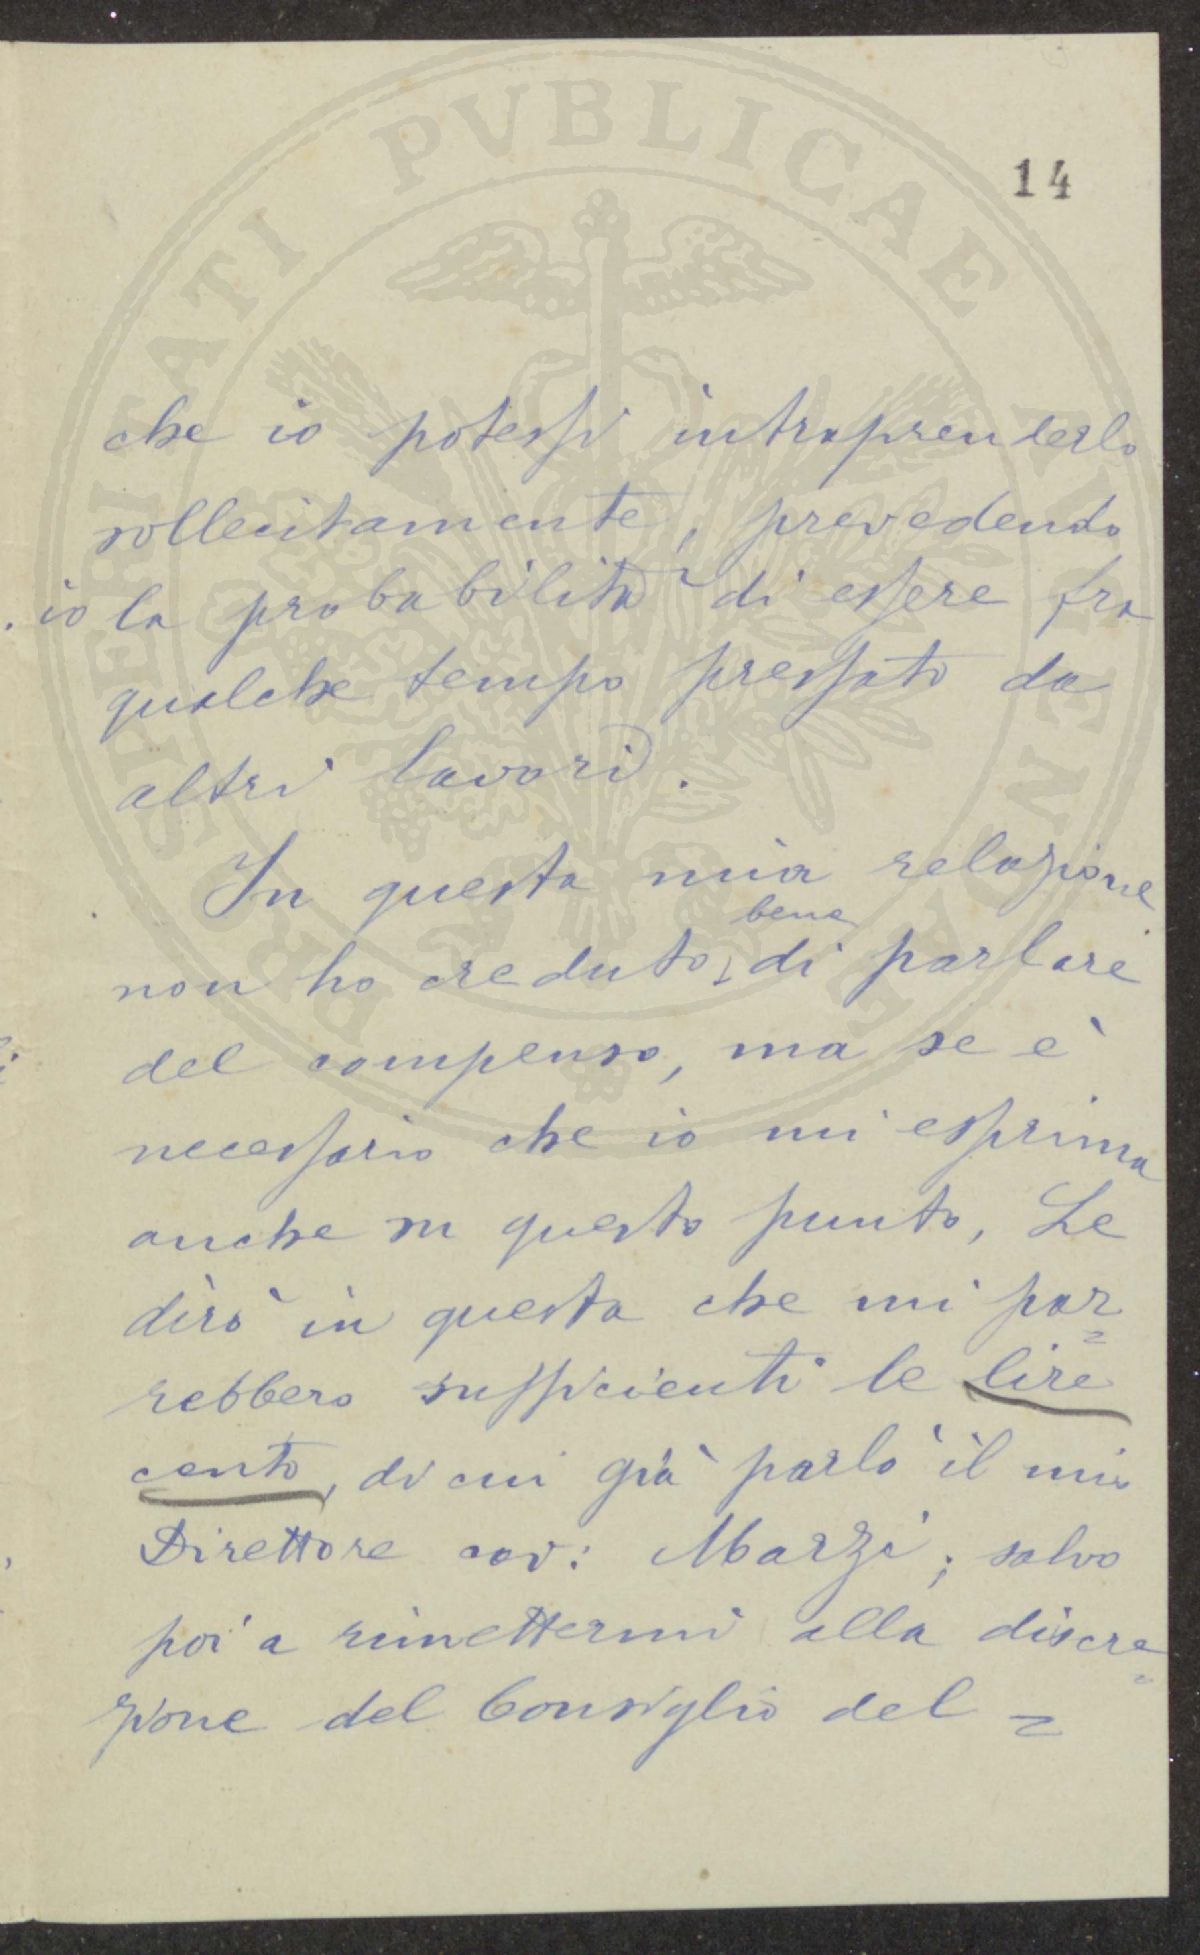 PROSPERITATI PVBLICAE AVGENDAE
14
che io potessi intraprenderlo
sollecitamente, prevedendo
io la probabilità di essere fra
qualche tempo pressato da
altri lavori.
In questa mia relazione
bene
non ho creduto di parlare
del compenso, ma se è
necessario che io mi esprima
anche su questo punto, Le
dirò in questa che mi par=
rebbero sufficienti le lire
cento, di cui già parlò il mio
Direttore cav: Marzi; salvo
poi a rimettermi alla discre=
zione del Consiglio del =